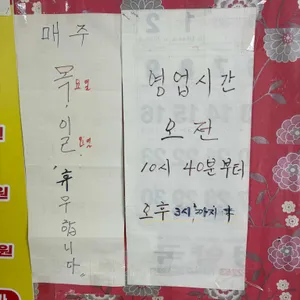 매주
목요일!
일요일.
휴무합니다.
영업시간
오전
10시 40분부터
오후 3시까지
원
원